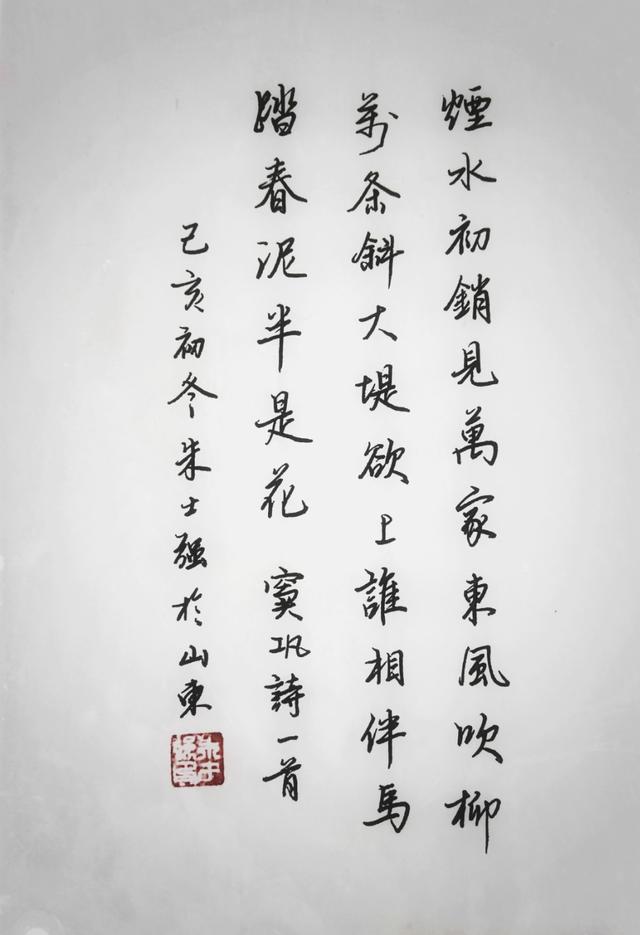 煙水初銷見萬家東風吹柳
萬条斜大堤欲上誰相伴馬
踏春泥半是花 窦巩詩一首
己亥初冬朱士强於山東